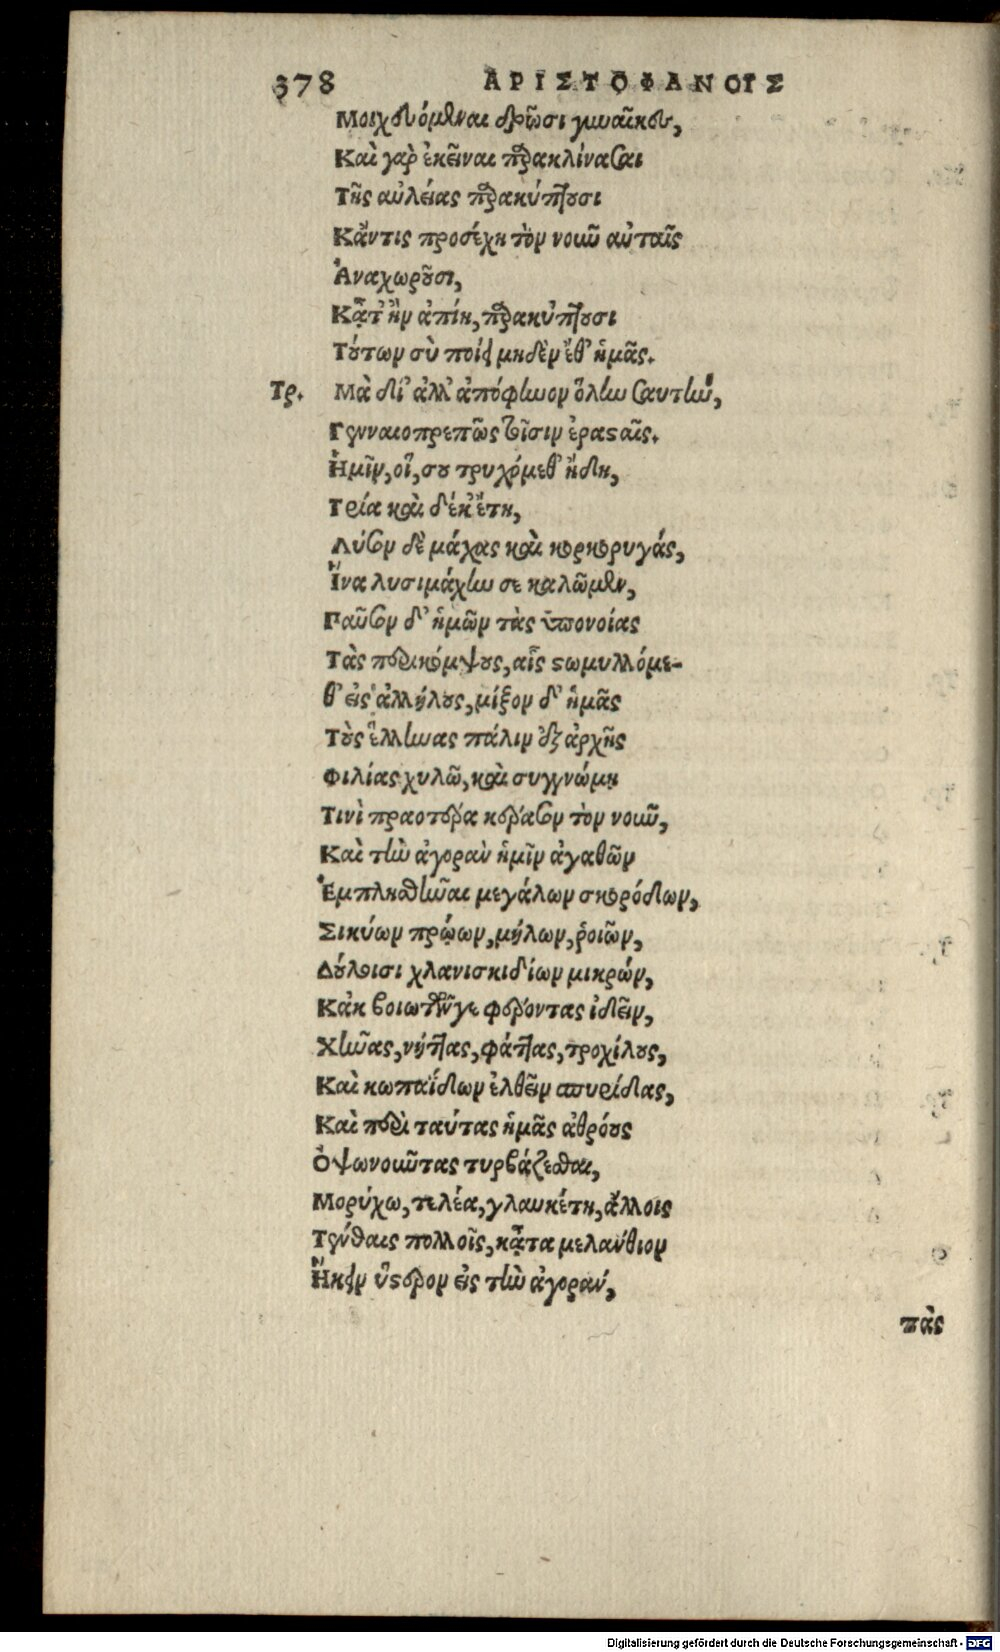 378 ΑΡΙΣΤΟΦΑΝΟΥΣ
Μοιχευόμεναι δρῶσι γυναῖκες,
Καὶ γὰρ ἐκεῖναι παρακλίνασαι
Τῆς αὐλείας παρακύπτουσι
Κἄντις προσέχῃ τὸν νοῦν αὐταῖς
Ἀναχωροῦσι,
Κᾆτ' ἢν ἀπίῃ, παρακύπτουσι
Τούτων σὺ ποίει μηδὲν ἔθ' ἡμᾶς.
Τρ. Μὰ δί' ἀλλ' ἀπόφηνον ὅλην σαυτὴν,
Γενναιοπρεπῶς τοῖσιν ἐρασταῖς.
Ἡμῖν, οἵ, σου τρυχόμεθ' ἤδη,
Τρία καὶ δέκ' ἔτη,
Λύσον δὲ μάχας καὶ κορκορυγάς,
Ἵνα λυσιμάχην σε καλῶμεν,
Παῦσον δ' ἡμῶν τὰς ὑπονοίας
Τὰς περικόμψους, αἷς στωμυλλόμε-
θ' εἰς ἀλλήλους, μίξον δ' ἡμᾶς
Τοὺς ἕλληνας πάλιν ἐξ ἀρχῆς
Φιλίας χυλῶ, καὶ συγγνώμῃ
Τινὶ πραοτέρα κέρασον τὸν νοῦν,
Καὶ τὴν ἀγορὰν ἡμῖν ἀγαθῶν
Ἐμπλησθῆναι μεγάλων σκορόδων,
Σικύων πρώων, μήλων, ῥοιῶν,
Δούλοισι χλανισκιδίων μικρών,
Κἀκ βοιωτῶν γε φέροντας ἰδεῖν,
Χῆνας, νήττας, φάττας, τροχίλους,
Καὶ κωπαΐδων ἐλθεῖν σπυρίδας,
Καὶ περὶ ταύτας ἡμᾶς ἀθρόους
Ὀψωνοῦντας τυρβάζεσθαι,
Μορύχω, τελέα, γλαυκέτῃ, ἄλλοις
Τένθαις πολλοῖς, κᾆτα μελάνθιον
Ἥκειν ὕστερον εἰς τὴν ἀγοράν,
πὰς
Digitalisierung gefördert durch die Deutsche Forschungsgemeinschaft - DFG